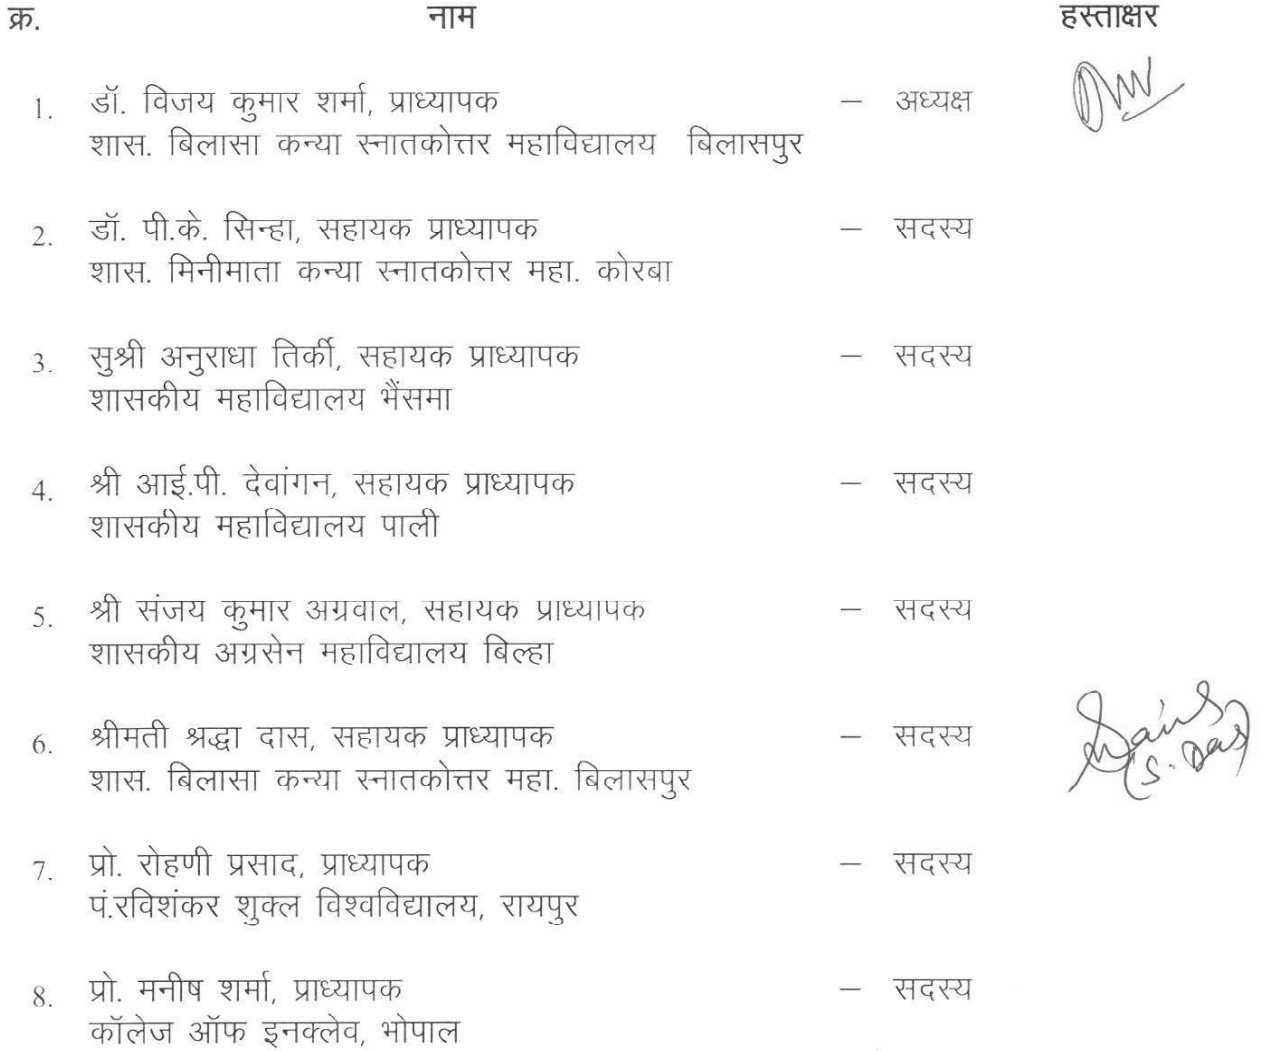 क्र. नाम हस्ताक्षर
1. डॉ. विजय कुमार शर्मा, प्राध्यापक – अध्यक्ष
शास. बिलासा कन्या स्नातकोत्तर महाविद्यालय बिलासपुर
2. डॉ. पी.के. सिन्हा, सहायक प्राध्यापक – सदस्य
शास. मिनीमाता कन्या स्नातकोत्तर महा. कोरबा
3. सुश्री अनुराधा तिर्की, सहायक प्राध्यापक – सदस्य
शासकीय महाविद्यालय भैंसमा
4. श्री आई.पी. देवांगन, सहायक प्राध्यापक – सदस्य
शासकीय महाविद्यालय पाली
5. श्री संजय कुमार अग्रवाल, सहायक प्राध्यापक – सदस्य
शासकीय अग्रसेन महाविद्यालय बिल्हा
6. श्रीमती श्रद्धा दास, सहायक प्राध्यापक – सदस्य
(S. Das)
शास. बिलासा कन्या स्नातकोत्तर महा. बिलासपुर
7. प्रो. रोहणी प्रसाद, प्राध्यापक – सदस्य
पं.रविशंकर शुक्ल विश्वविद्यालय, रायपुर
8. प्रो. मनीष शर्मा, प्राध्यापक – सदस्य
कॉलेज ऑफ इनक्लेव, भोपाल